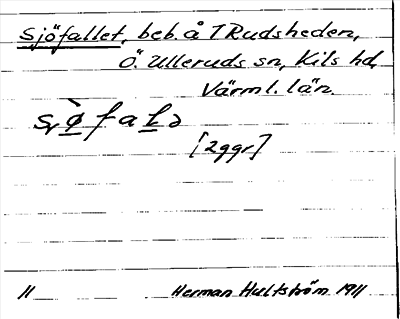 Sjöfallet, beb. å TRudsheden,
Ö. Ulleruds sn, Kils hd,
Värml. län.
[2ggr]
11 Herman Hultström 1911